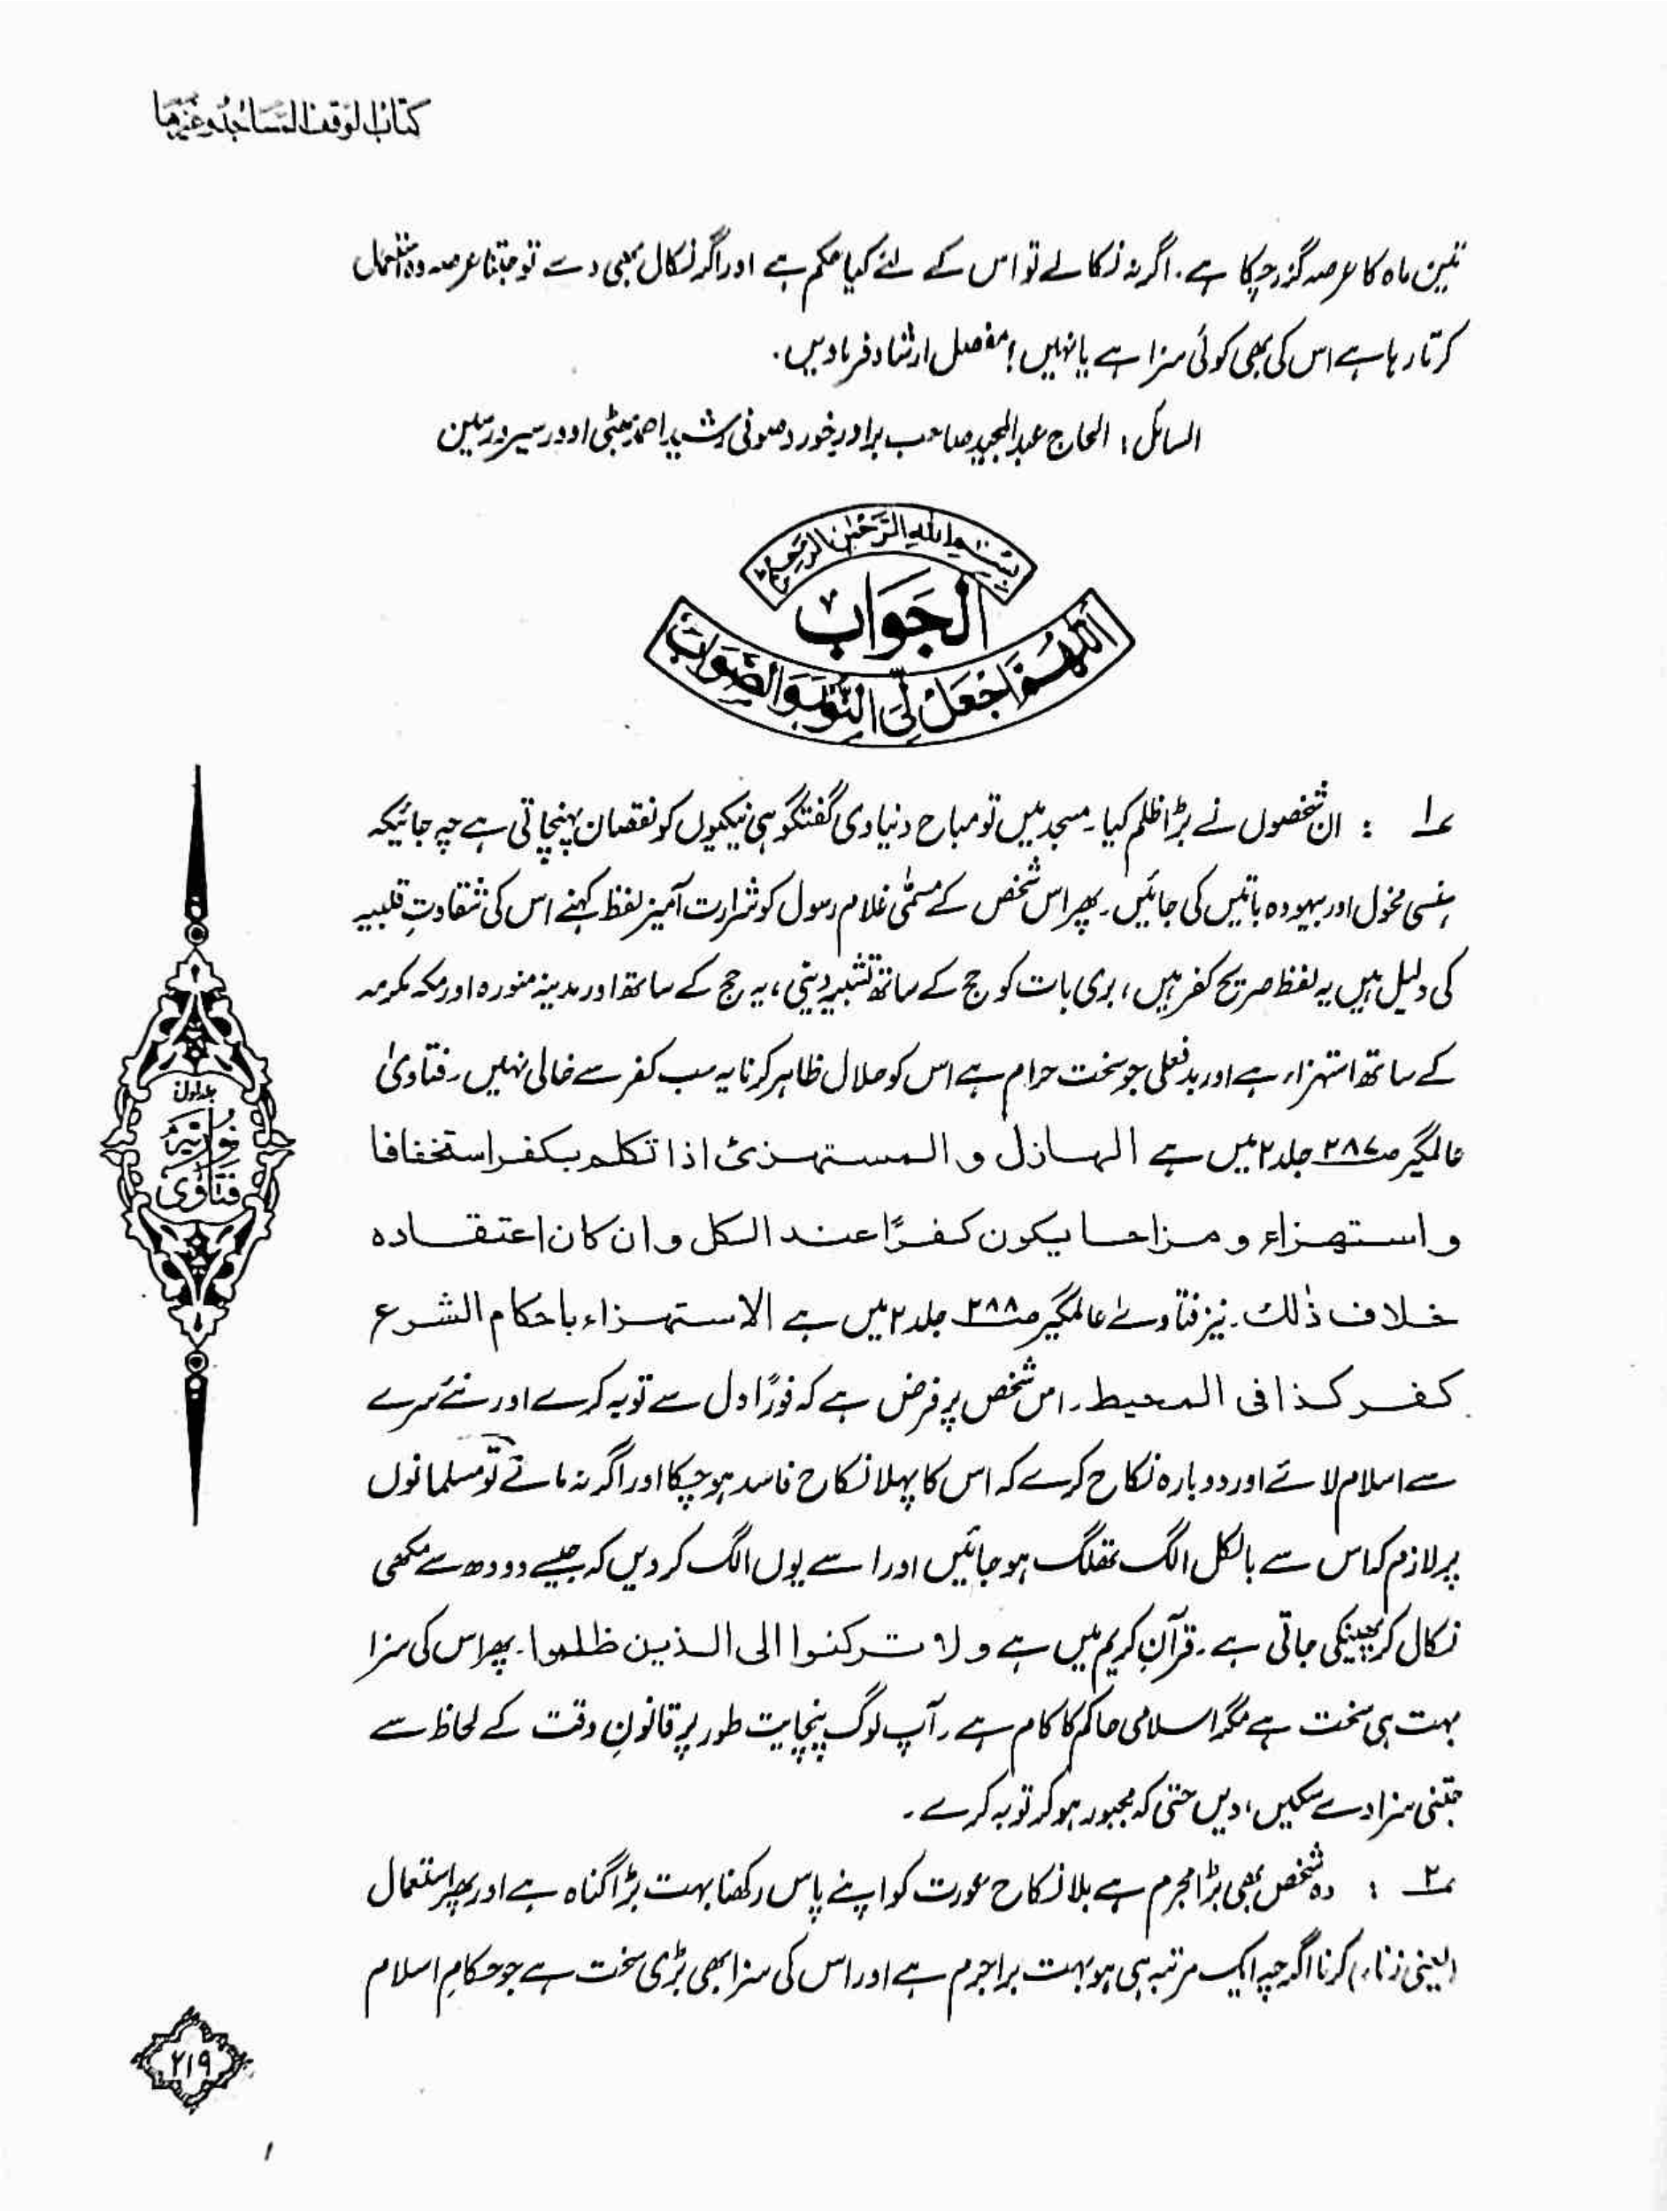 کتاب الوقف المساجد وغیرہا
تین ماہ کا عرصہ گزر چکا ہے۔ اگر نہ نکالے تو اس کے لئے کیا حکم ہے اور اگر نکال بھی دے تو جتنا عرصہ وہ استعمال
کرتا رہا ہے اس کی بھی کوئی سزا ہے یا نہیں؟ مفصل ارشاد فرمادیں۔
السائل: الحاج عبدالمجید صاحب برادر خورد صوفی رشید احمد بھٹی اوورسیر
بِسْمِ اللہِ الرَّحْمٰنِ الرَّحِیْمِ
الجَوَابُ
اَللّٰهُمَّ اجْعَلْ لِّیَ النُّوْرَ وَالصَّوَابَ
۱ : ان شخصوں نے بڑا ظلم کیا۔ مسجد میں تو مباح دنیاوی گفتگو ہی نیکیوں کو نقصان پہنچاتی ہے چہ جائیکہ
ہنسی مخول اور بیہودہ باتیں کی جائیں۔ پھر اس شخص کے مسمّٰی غلام رسول کو شرارت آمیز لفظ کہنے اس کی شقاوتِ قلبیہ
کی دلیل ہیں یہ لفظ صریح کفر ہیں، بری بات کو حج کے ساتھ تشبیہ دینی، یہ حج کے ساتھ اور مدینہ منورہ اور مکہ مکرمہ
کے ساتھ استہزاء ہے اور بدفعلی جو سخت حرام ہے اس کو حلال ظاہر کرنا یہ سب کفر سے خالی نہیں۔ فتاویٰ
عالمگیر ص۲۸۷ جلد ۲ میں ہے الہازل و المستہزئ اذا تکلم بکفر استخفافا
و استہزاء و مزاحا یکون کفرًا عند الکل و ان کان اعتقادہ
خلاف ذٰلک۔ نیز فتاوےٰ عالمگیر ص۲۸۸ جلد ۲ میں ہے الاستہزاء باحکام الشرع
کفر کذا فی المحیط۔ اس شخص پر فرض ہے کہ فورًا دل سے توبہ کرے اور نئے سرے
سے اسلام لائے اور دوبارہ نکاح کرے کہ اس کا پہلا نکاح فاسد ہو چکا اور اگر نہ مانے تو مسلمانوں
پر لازم کہ اس سے بالکل الگ تھلگ ہو جائیں اور اسے یوں الگ کر دیں کہ جیسے دودھ سے مکھی
نکال کر پھینکی جاتی ہے۔ قرآن کریم میں ہے و لا ترکنوا الی الذین ظلموا۔ پھر اس کی سزا
بہت ہی سخت ہے مگر اسلامی حاکم کا کام ہے۔ آپ لوگ پنچایت طور پر قانونِ وقت کے لحاظ سے
جتنی سزا دے سکیں، دیں حتیٰ کہ مجبور ہو کر توبہ کرے۔
۲ : وہ شخص بھی بڑا مجرم ہے بلا نکاح عورت کو اپنے پاس رکھنا بہت بڑا گناہ ہے اور پھر استعمال
(یعنی زناء) کرنا اگرچہ ایک مرتبہ ہی ہو بہت برا جرم ہے اور اس کی سزا بھی بڑی سخت ہے جو حکامِ اسلام
جلد اول
نوریہ
فتاوی
۲۱۹